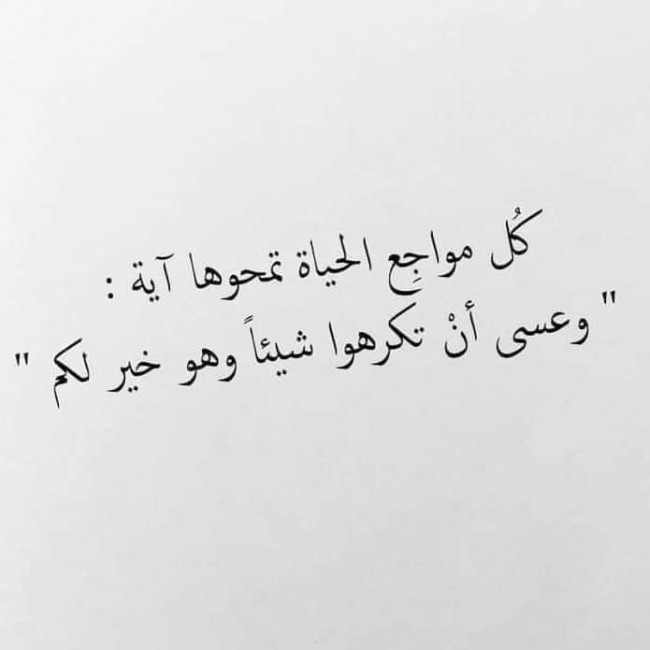 كُل مواجِع الحياة تمحوها آية :
" وعسى أنْ تكرهوا شيئاً وهو خير لكم "